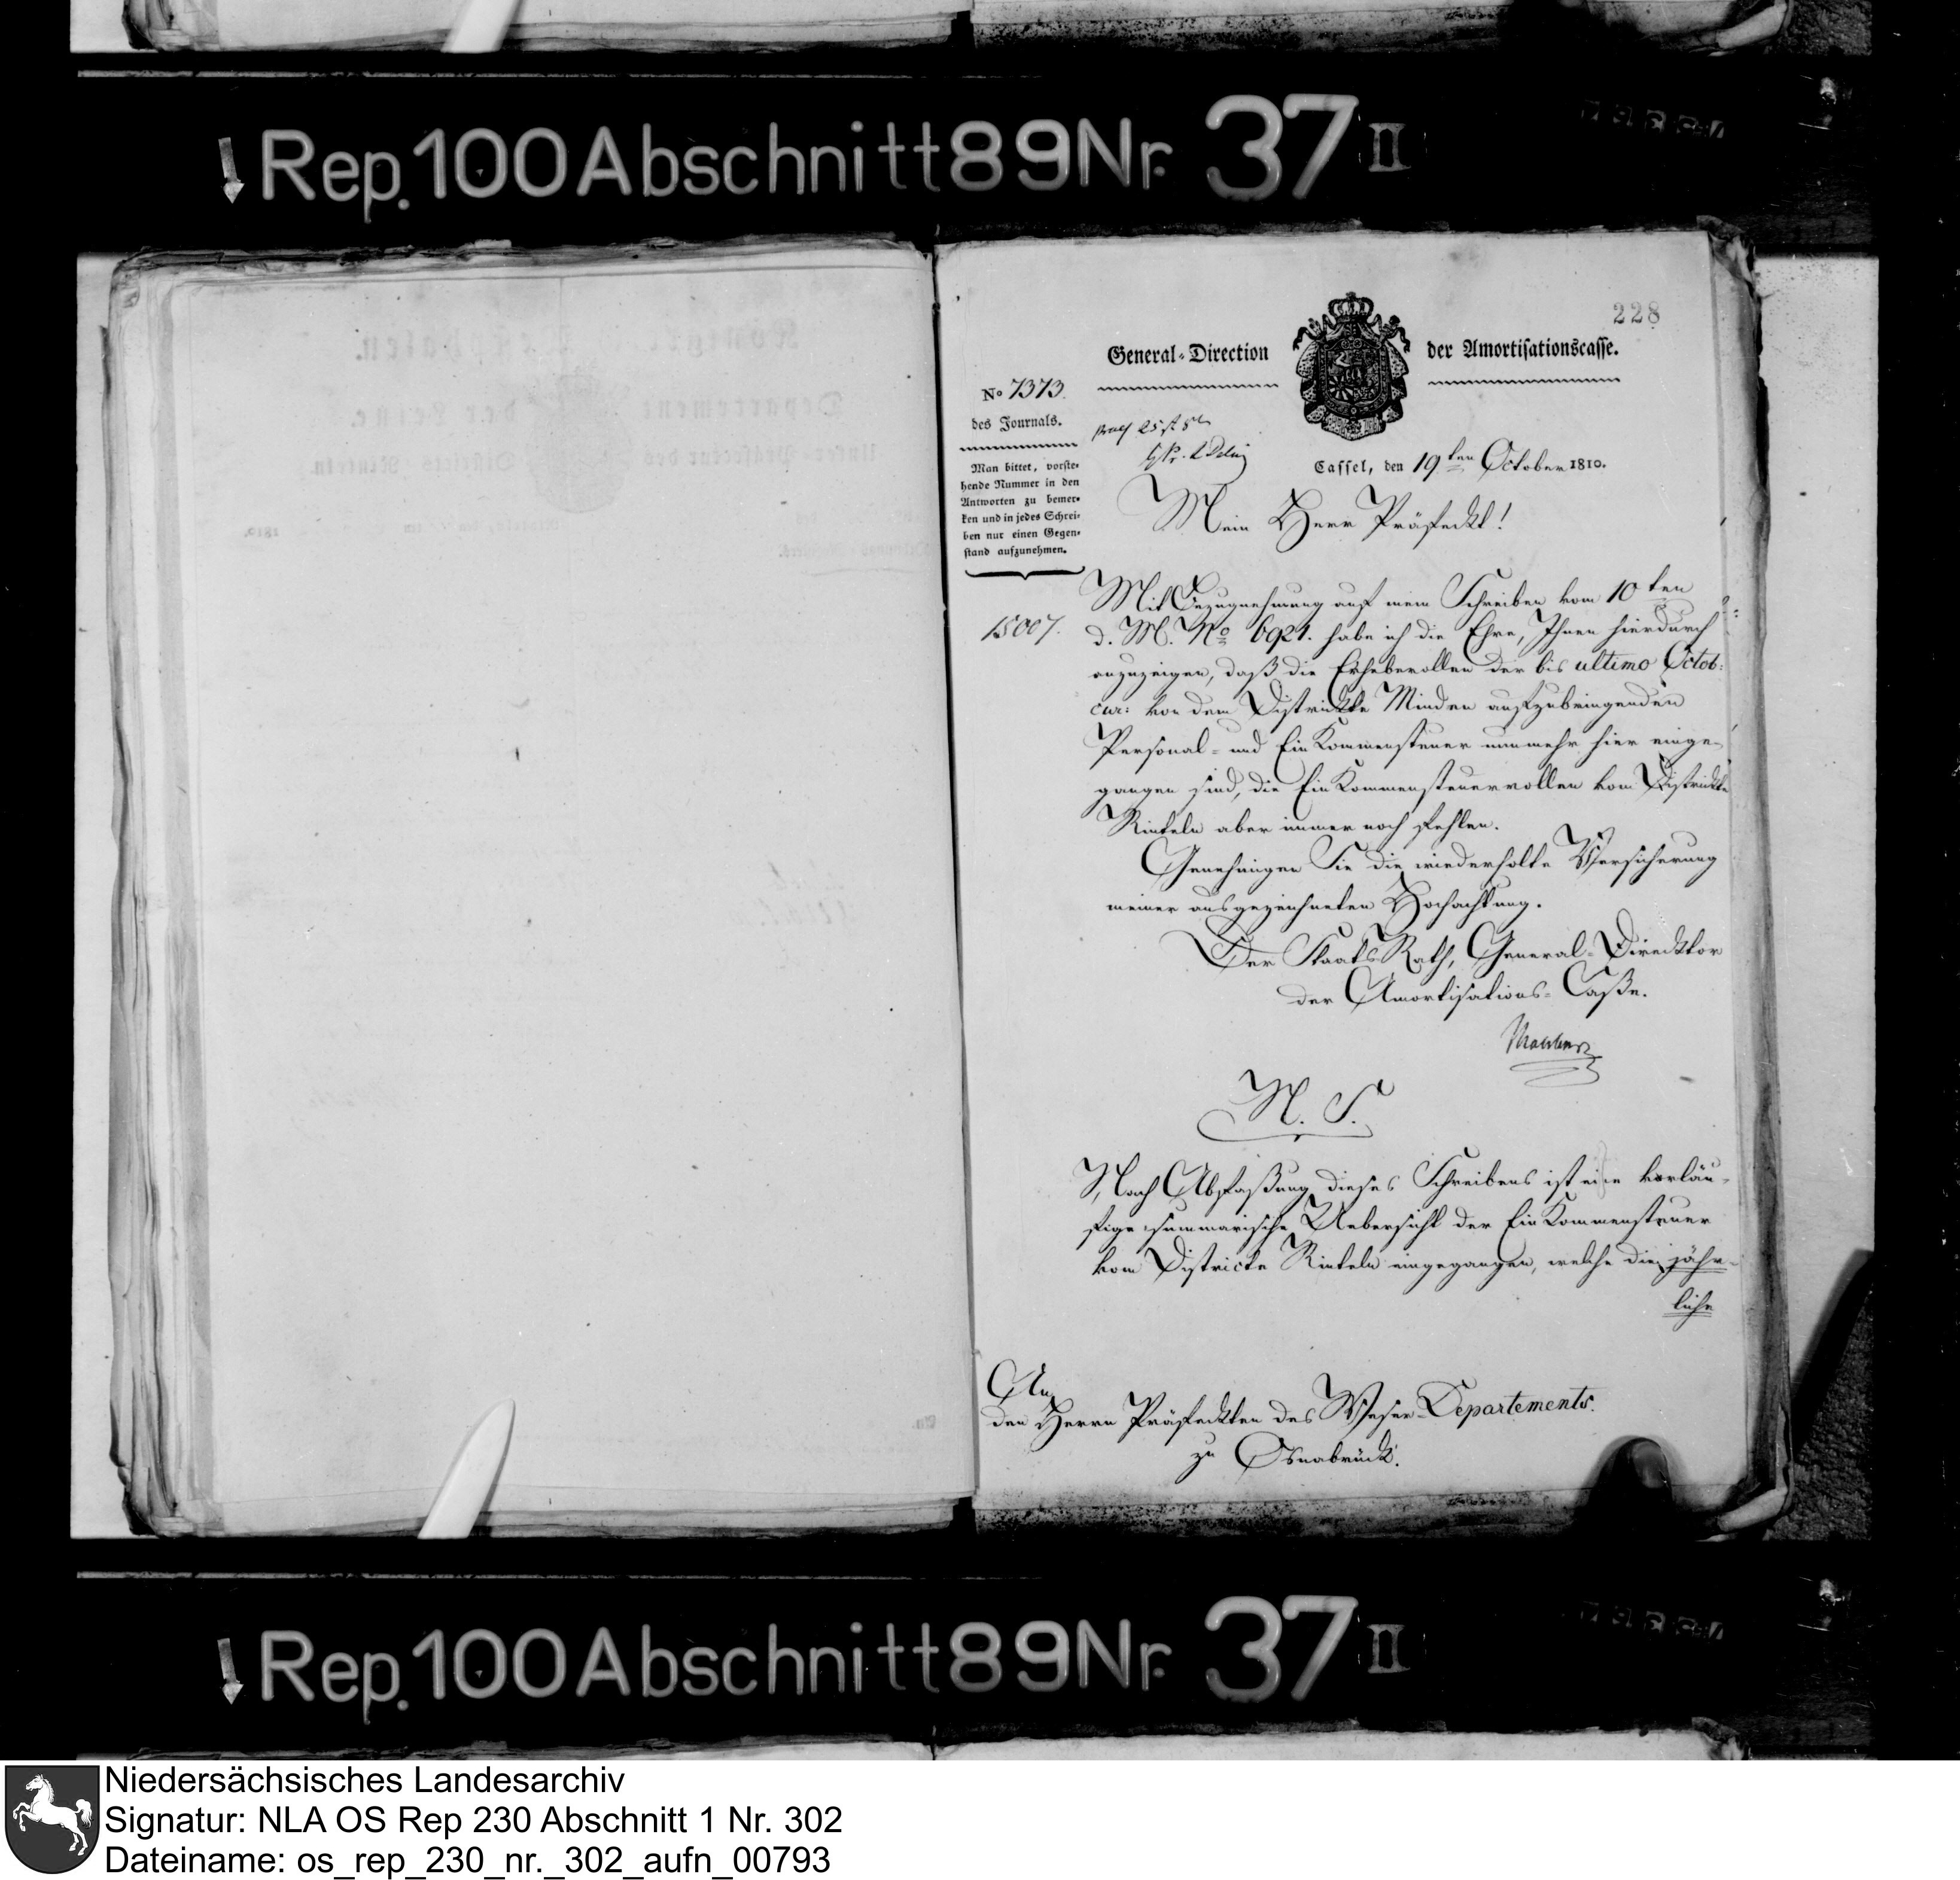 Rep. 100 Abschnitt 89 Nr. 37 II
228
General-Direction der Amortisationscasse.
No 7373.
des Journals.
Man bittet, vorste-
hende Nummer in den
Antworten zu bemer-
ken und in jedes Schrei-
ben nur einen Gegen-
stand aufzunehmen.
Cassel, den 19ten October 1810.
Mein Herr Präfeckt!
15007.
Mit Bezugnehmung auf mein Schreiben vom 10ten
d. M. No 6921. habe ich die Ehre, Ihnen hierdurch
anzuzeigen, daß die Erheberollen der bis ultimo Octob:
cur: von dem Districkte Minden aufzubringenden
Personal- und Einkommensteuer nunmehr hier einge-
gangen sind, die Einkommensteuerrollen vom Districkte
Rinteln aber immer noch fehlen.
Genehmigen Sie die wiederholte Versicherung
meiner ausgezeichneten Hochachtung.
Der Staats Rath, General-Direcktor
der Amortisations-Caße.
N. S.
Nach Abfaßung dieses Schreibens ist eine vorläu-
fige summarische Uebersicht der Einkommensteuer
vom Districte Rinteln eingegangen, welche die jähr-
liche
An
den Herrn Präfeckten des Weser-Departements.
zu Osnabrück.
Rep. 100 Abschnitt 89 Nr. 37 II
Niedersächsisches Landesarchiv
Signatur: NLA OS Rep 230 Abschnitt 1 Nr. 302
Dateiname: os_rep_230_nr._302_aufn_00793